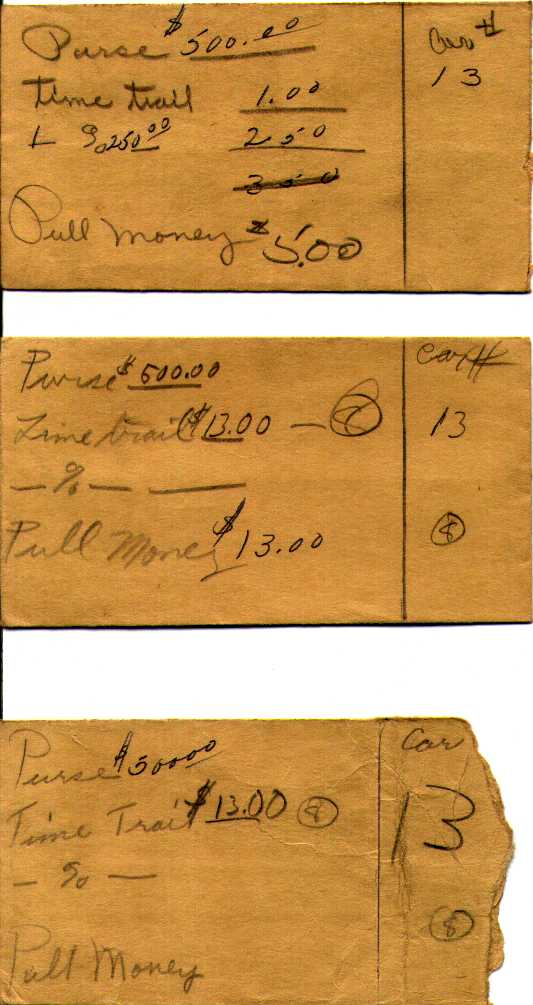 Purse $500.00
Car #
Time trail 1.00
13
% 250.00 250
350
Pull Money $5.00
Purse $500.00
Car #
Time trail $13.00 — 8
13
— % —
Pull Money $13.00
8
Purse $500.00
Car
Time Trail $13.00 8
13
— % —
8
Pull Money